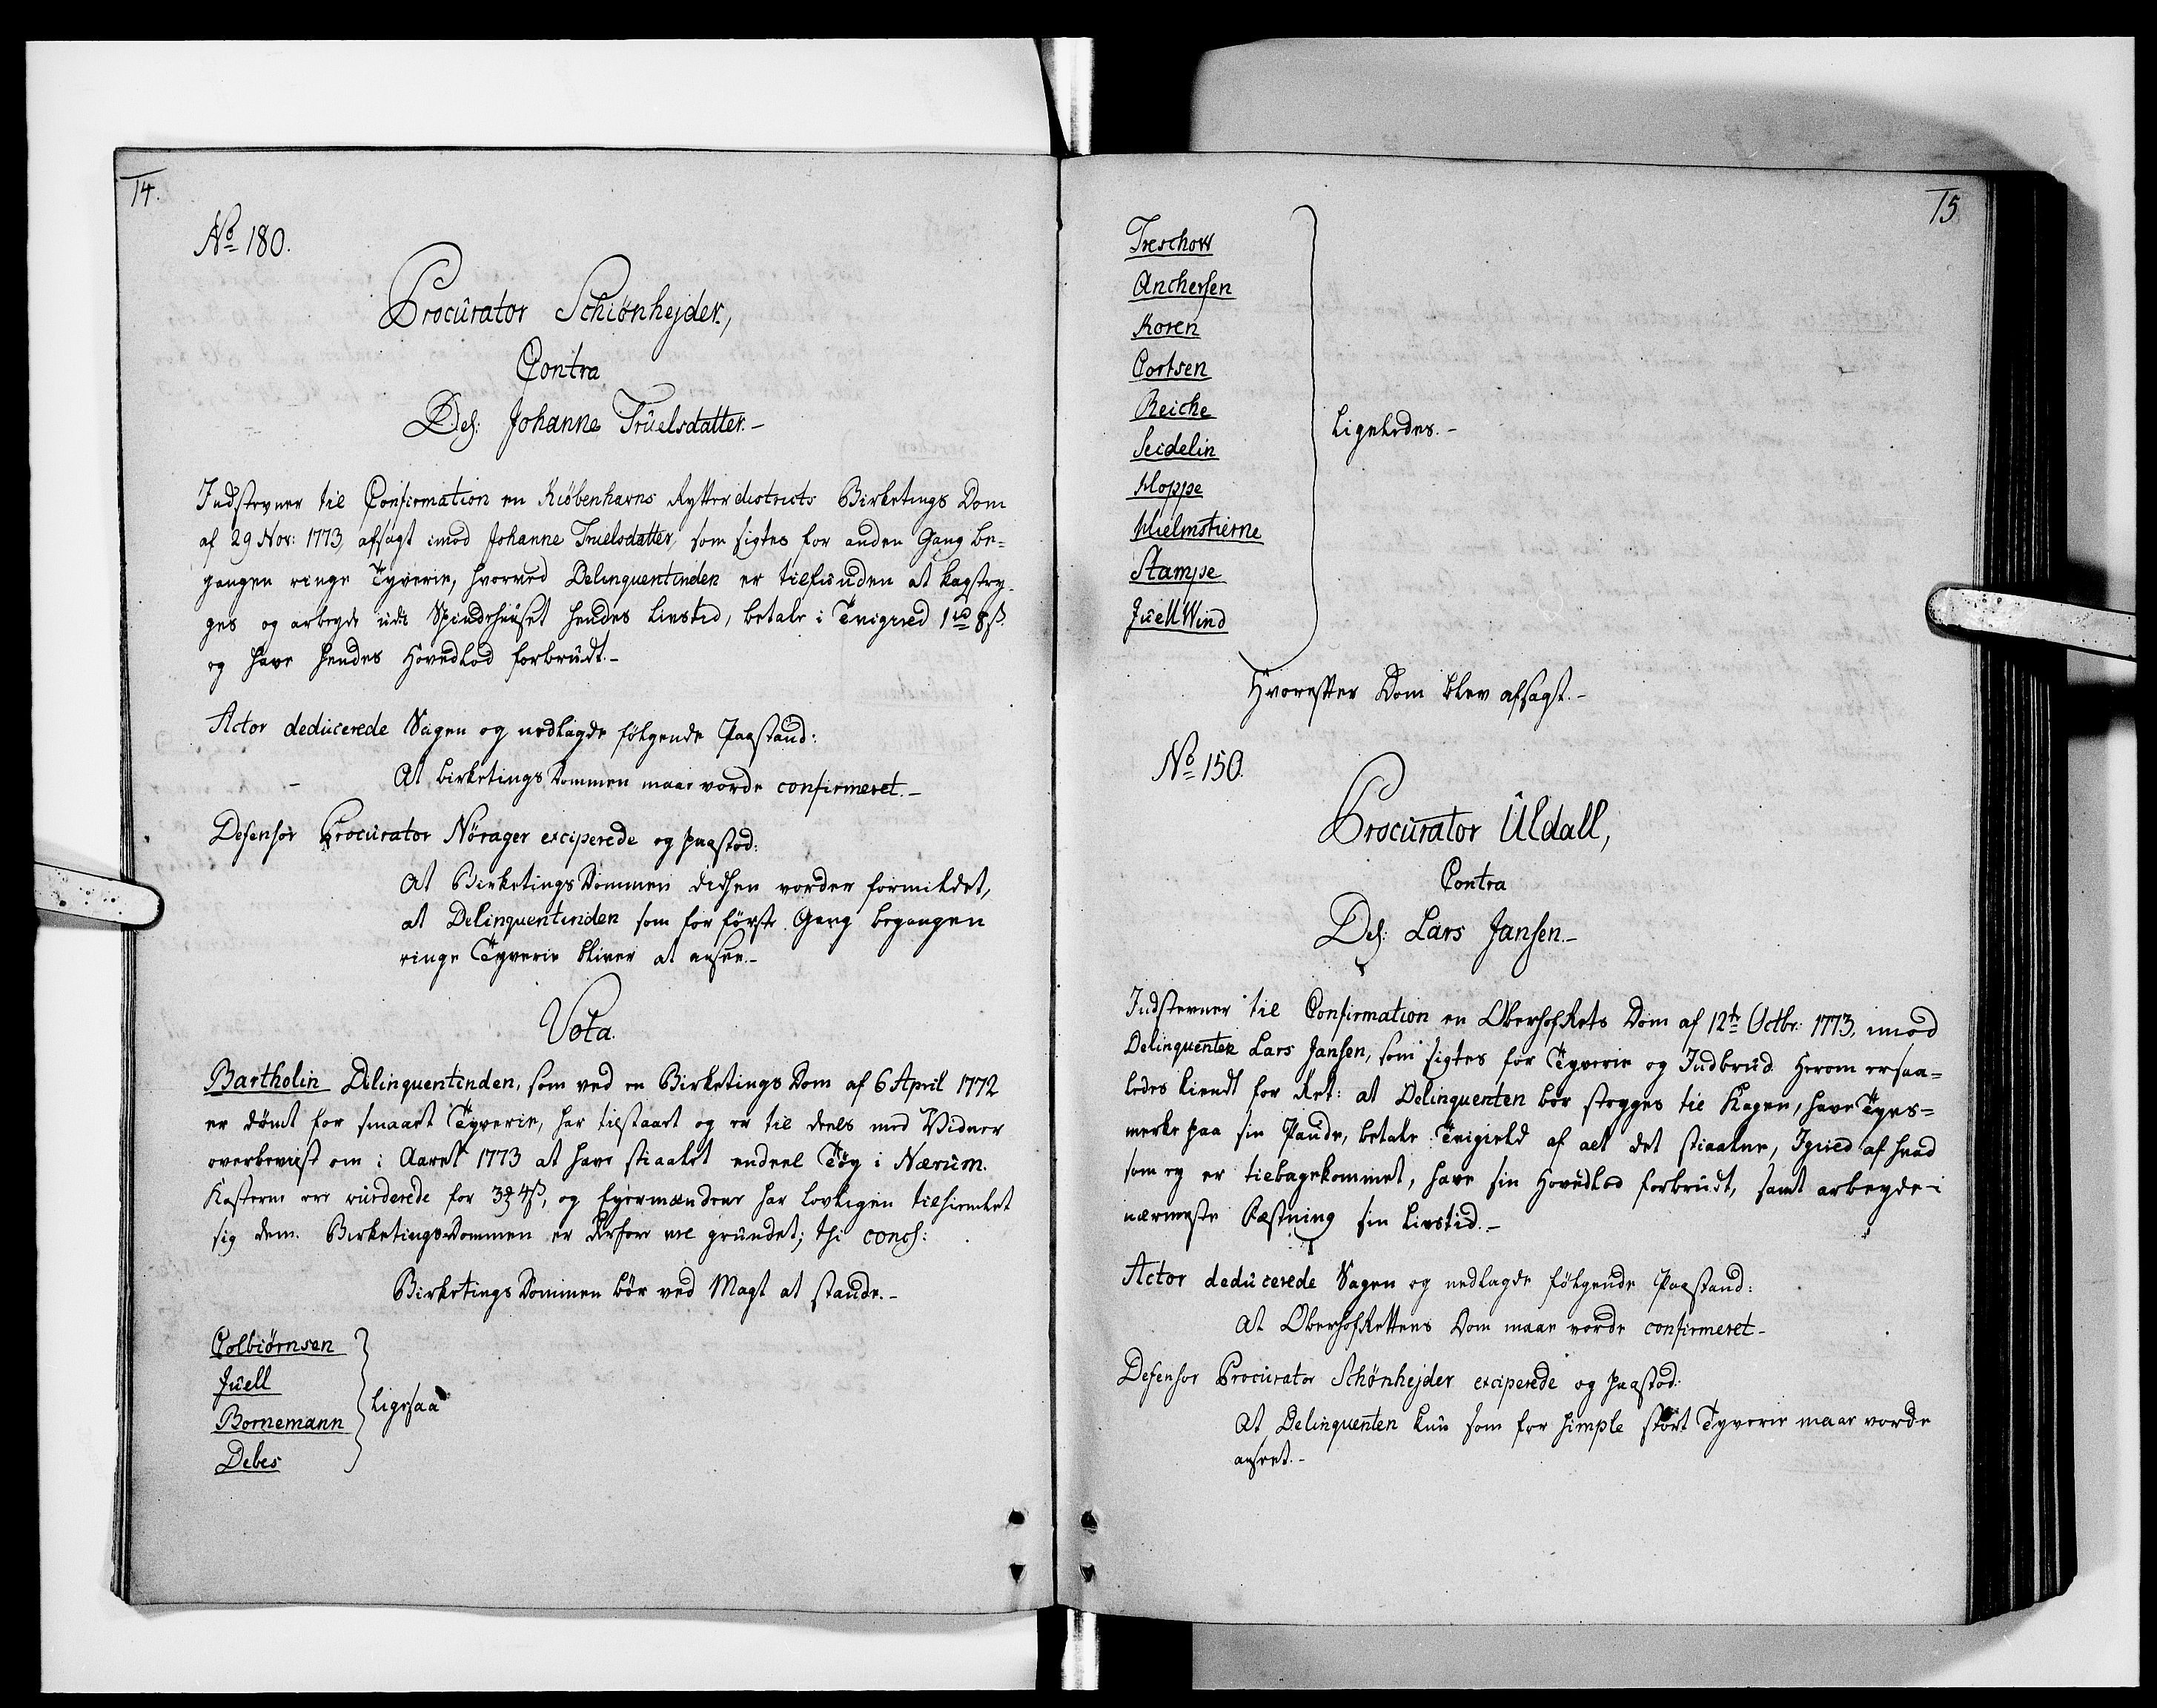 14.
No 180.
Procurator Schiönhejder,
Contra
Del: Johanne Truelsdatter.-
Indstevner til Confirmation en Kiöbenhavns Rytterdistricts Birketings Dom
af 29 Nov: 1773, afsagt imod Johanne Truelsdatter, som sigtes for anden Gang be=
gangen ringe Tyverie, hvorved Delinquentinden er tilfunden at kagstry-
ges og arbeyde udi Spindehuuset hendes Livstid, betale i Tvigield 1 rd 8 s.
og have hendes Hovedlod forbrudt.-
Actor deducerede Sagen og nedlagde fölgende Paastand:
At Birketings Dommen maae vorde confirmeret.-
Defensor Procurator Nörager exciperede og paastod:
At Birketings Dommen didhen vorder formildet,
at Delinquentinden som for förste Gang begangen
ringe Tyverie bliver at ansee.-
Vota.
Bartholin Delinquentinden, som ved en Birketings Dom af 6 April 1772
er dömt for smaaet Tyverie, har tilstaaet og er til deels med Vidner
overbeviist om i Aaret 1773 at have stiaalet endeel Töy i Nærum.
Kosterne ere vurderede for 3 4 s, og Eyermændene har lovligen tilhiemlet
sig dem. Birketings Dommen er derfore vel grundet; thi concl:
Birketings Dommen bör ved Magt at stande.-
Colbiörnsen
Juell
Bornemann
Debes
Ligesaa
15
Treschow
Anchersen
Koren
Cortsen
Reiche
Seidelin
Hoppe
Hielmstierne
Stampe
Juell Wind
Ligeledes.-
Hvorefter Dom blev afsagt.-
No 150.
Procurator Uldall,
Contra
Del: Lars Jansen.-
Indstevner til Confirmation en Oberhofrets Dom af 12te Octbr: 1773, imod
Delinquenten Lars Jansen, som sigtes for Tyverie og Indbrud. Herom er saa=
ledes kiendt for Ret: at Delinquenten bör stryges til Kagen, have Tyvs=
merke paa sin Pande, betale Tvigield af alt det stiaalne, Igield af hvad
som ey er tilbagekommet, have sin Hovedlod forbrudt, samt arbeyde i
nærmeste Fæstning sin Livstid.-
Actor deducerede Sagen og nedlagde fölgende Paastand:
At Oberhofrettens Dom maae vorde confirmeret-
Defensor Procurator Schönhejder exciperede og paastod:
At Delinquenten kun som for simple stort Tyverie maae vorde
anseet.-